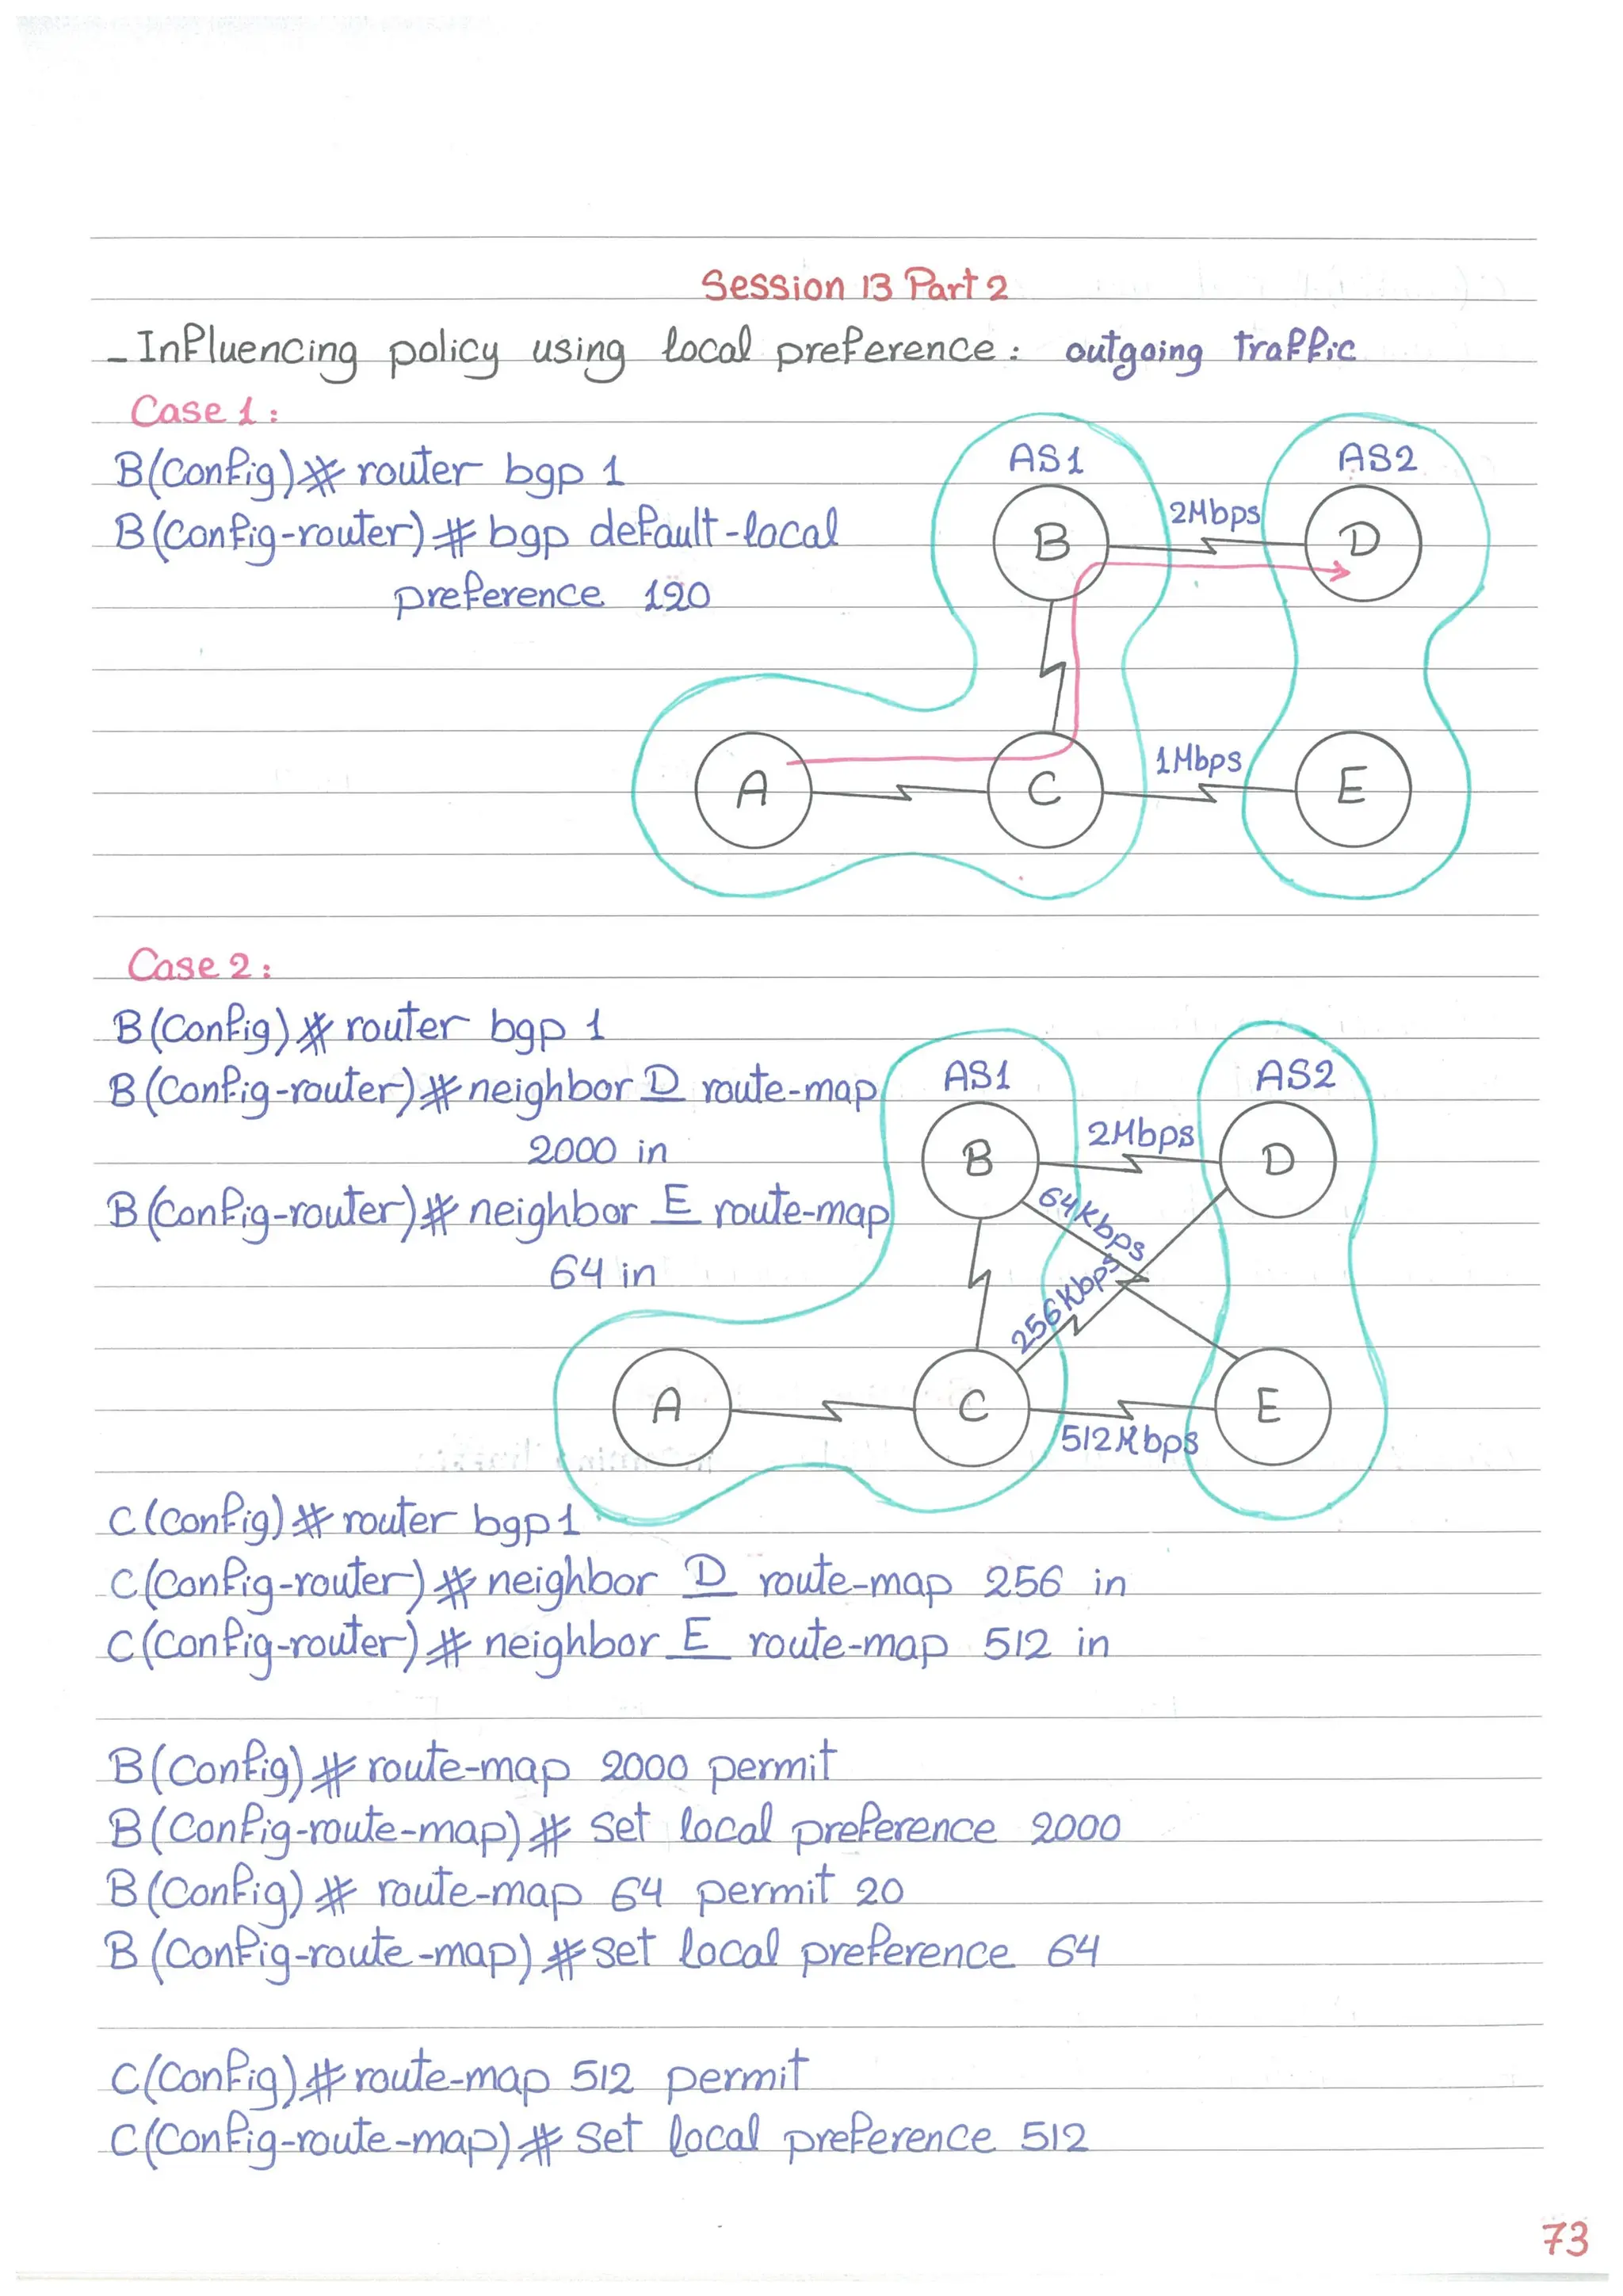 Session 13 Part 2
- Influencing policy using local preference: outgoing traffic
Case 1:
B(Config)# router bgp 1
B(Config-router)# bgp default-local
preference 120
AS1
AS2
B
2Mbps
D
A
C
1Mbps
E
Case 2:
B(Config)# router bgp 1
B(Config-router)# neighbor D route-map
2000 in
B(Config-router)# neighbor E route-map
64 in
AS1
AS2
B
2Mbps
D
64Kbps
256Kbps
A
C
512Kbps
E
C(Config)# router bgp 1
C(Config-router)# neighbor D route-map 256 in
C(Config-router)# neighbor E route-map 512 in
B(Config)# route-map 2000 permit
B(Config-route-map)# set local preference 2000
B(Config)# route-map 64 permit 20
B(Config-route-map)# set local preference 64
C(Config)# route-map 512 permit
C(Config-route-map)# set local preference 512
73